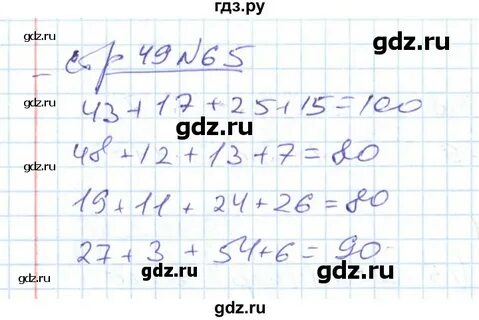 гдз.ру
gdz.ru
стр 49 №65
gdz.ru
43+17+25+15=100
gdz.ru
48+12+13+7=80
gdz.ru
19+11+24+26=80
gdz.ru
27+3+54+6=90
gdz.ru
gdz.ru
gdz.ru